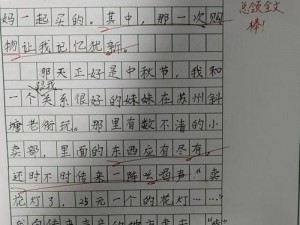 妈一起买的。其中，那一次购
物让我记忆犹新。
总领全文
棒！
那天正好是中秋节，我和
一个关系很好的妹妹在苏州斜
塘老街玩。那里有数不清的小
卖部，里面的东西应有尽有。
还时不时传来一阵么喝声“卖
花灯了，25元一个的花灯……”